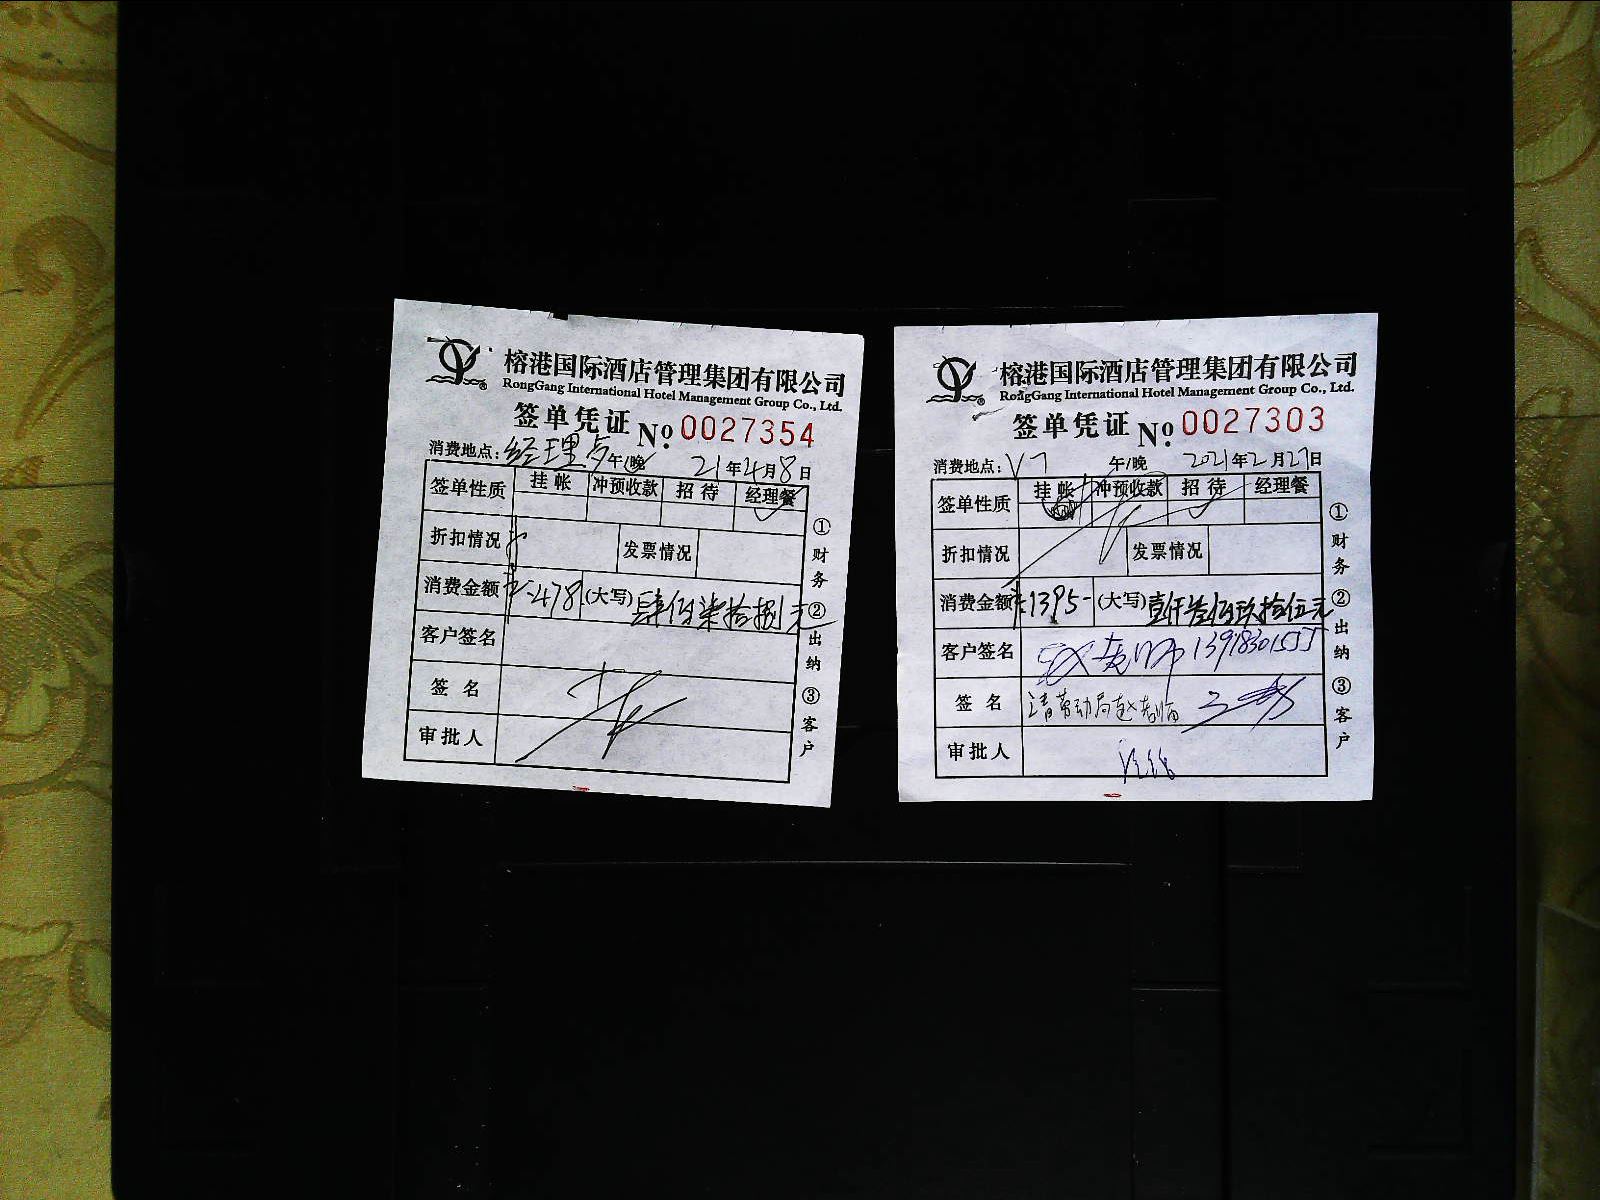 榕港国际酒店管理集团有限公司
RongGang International Hotel Management Group Co., Ltd.
签单凭证 No. 0027354
消费地点: 经理 午/晚 21年4月8日
签单性质 挂帐 冲预收款 招待 经理餐
折扣情况 发票情况
消费金额 ¥-478 (大写) 肆佰柒拾捌元
客户签名
签名
审批人
①财务 ②出纳 ③客户
榕港国际酒店管理集团有限公司
RongGang International Hotel Management Group Co., Ltd.
签单凭证 No. 0027303
消费地点: V7 午/晚 2021年2月27日
签单性质 挂帐 冲预收款 招待 经理餐
折扣情况 发票情况
消费金额 ¥1395- (大写) 壹仟叁佰玖拾伍元
客户签名
签名 请劳动局赵
审批人
①财务 ②出纳 ③客户